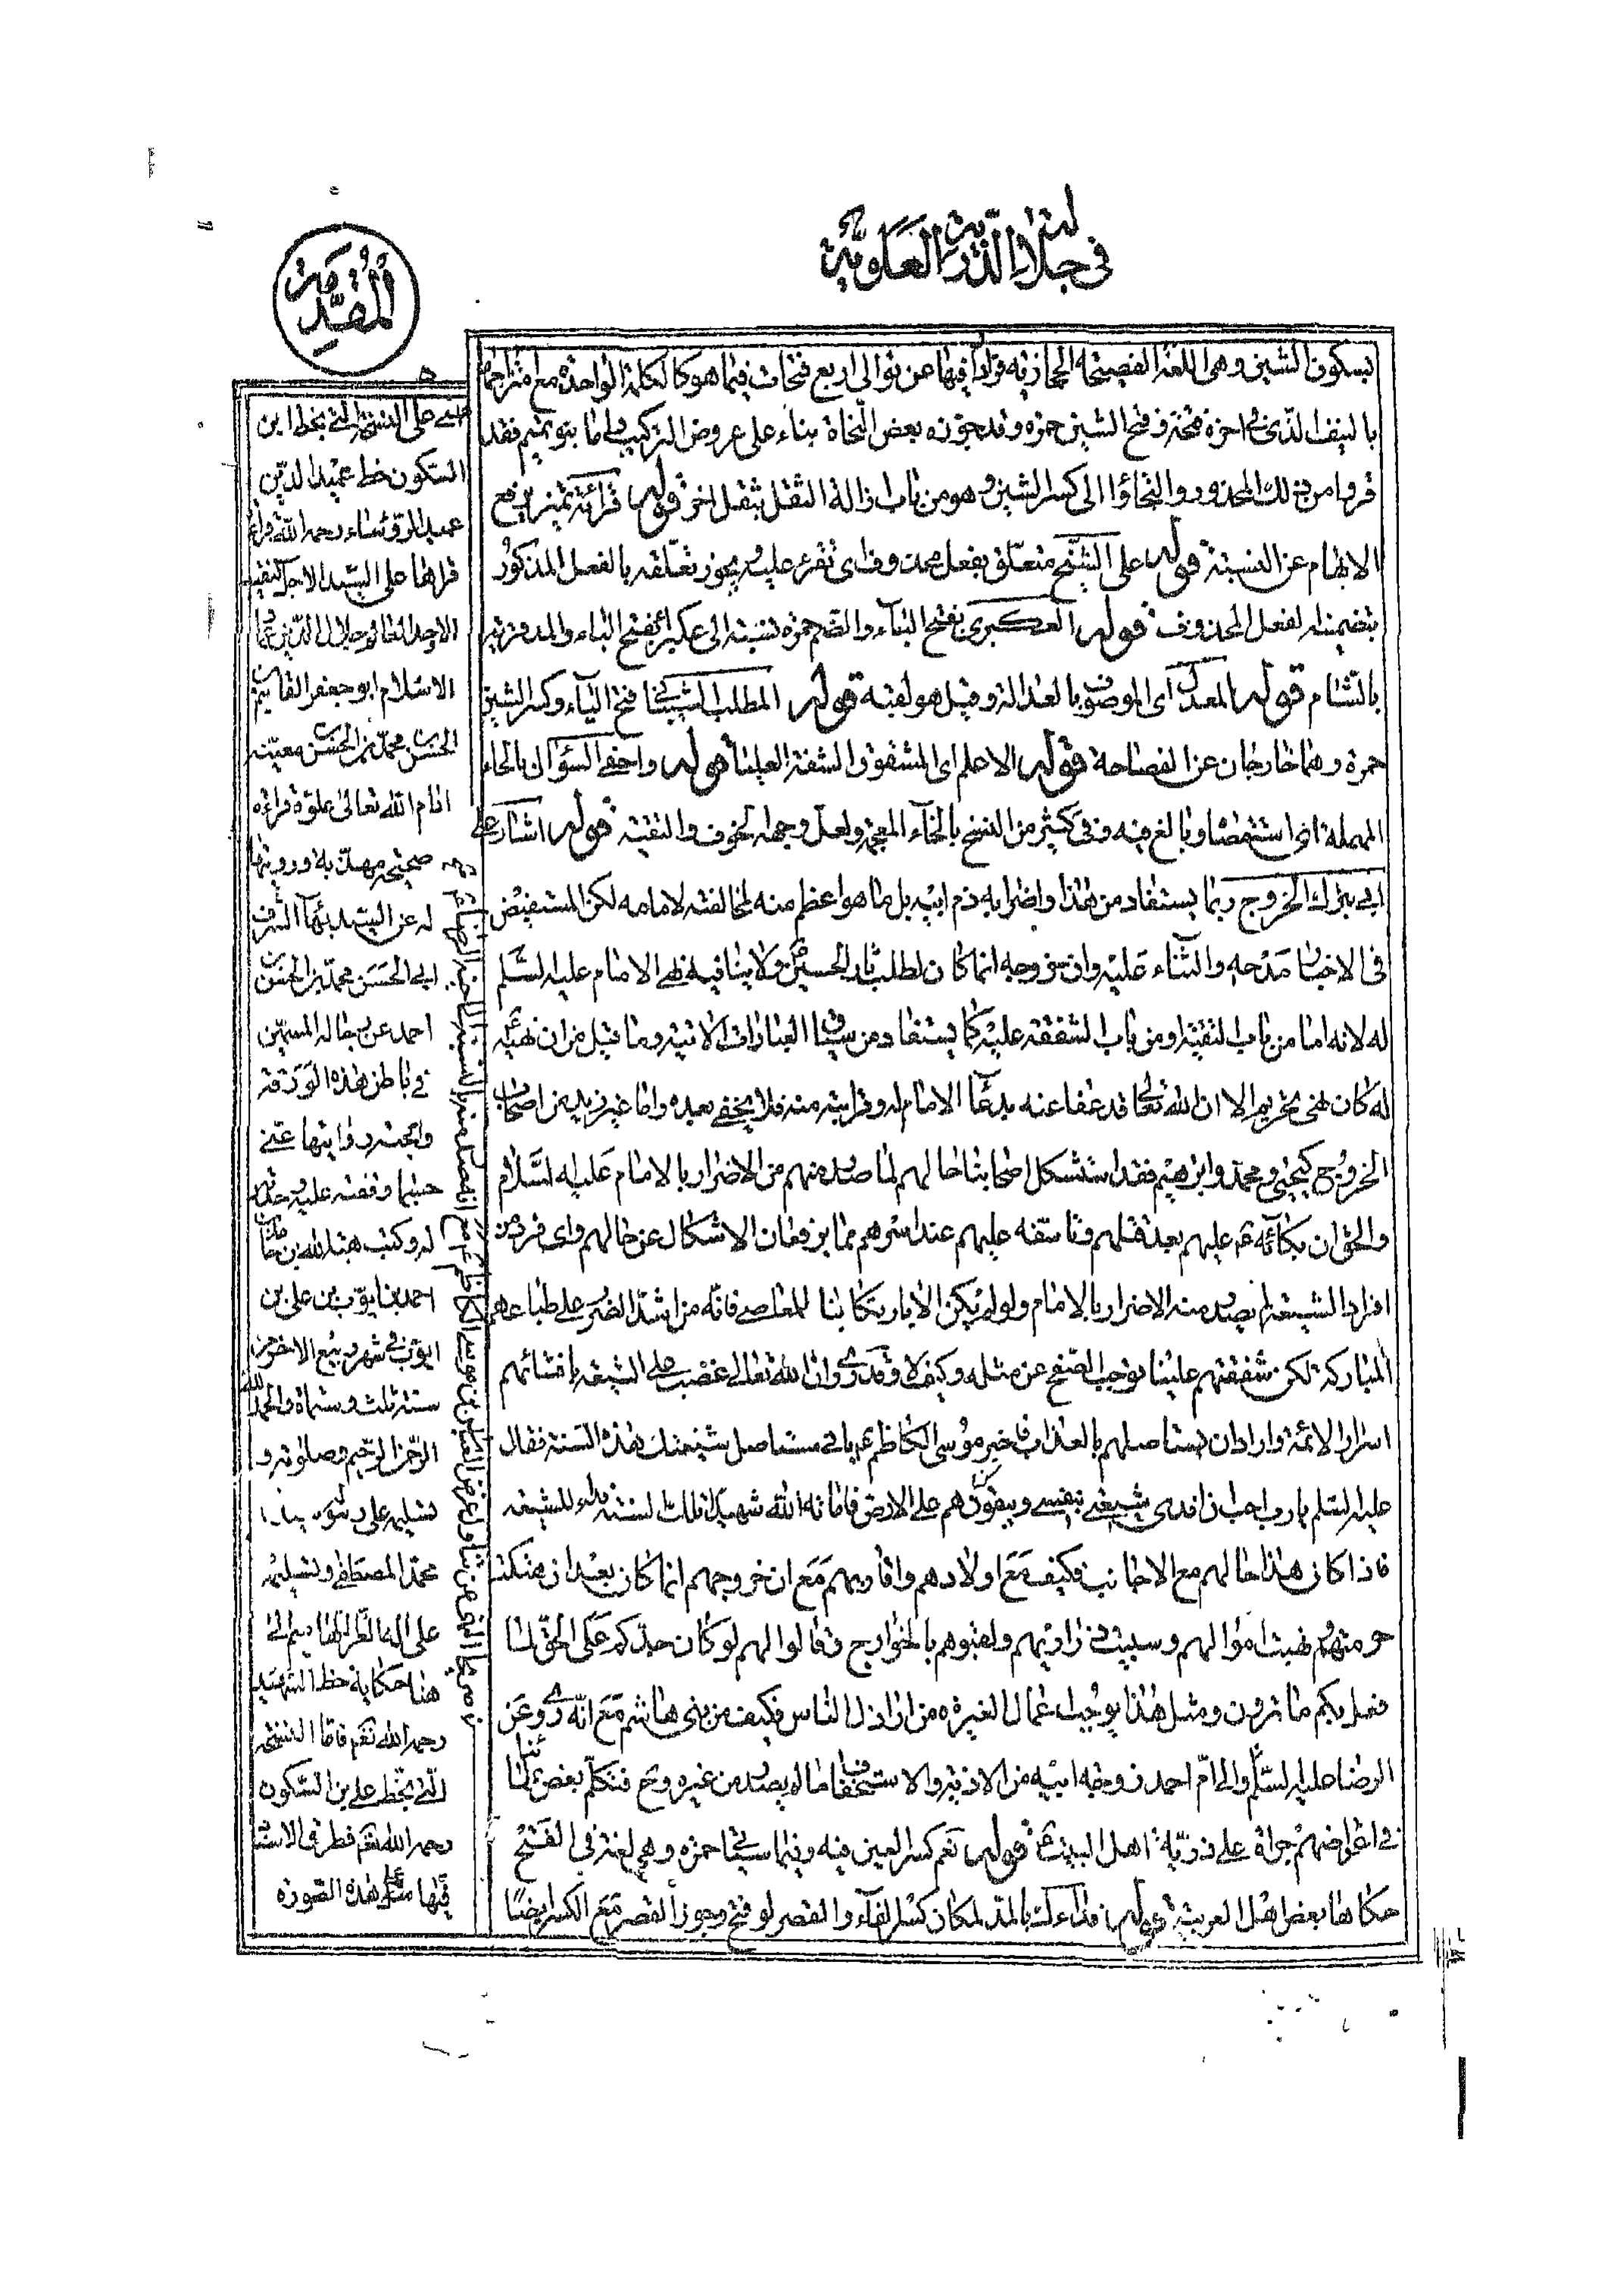 في جلالة الذرية العلوية
المقدمة
بسكون الشين وهى اللغة الفصيحة الحجازية فرارا فيها عن توالى اربع فتحات فيما هو كالكلمة الواحدة مع امتزاجها
بالنيف الذى فى اخره فتحة وفتح الشين حمزه وقد جوزه بعض النحاة بناء على عروض التركيب واما بنو تميم فقد
فروا من ذلك المحذور والتجاؤا الى كسر الشين وهو من باب ازالة الثقل بثقل اخر قوله قرائة تميز يرفع
الابهام عن النسبة قوله على الشيخ متعلق بفعل محذوف اى تفرع عليه ويجوز تعلقه بالفعل المذكور
بتضمينه الفعل المحذوف قوله العكبرى بفتح الباء والضم حمزه نسبة الى عكبراء بفتح الباء والمد قرية
بالشام قوله المعدل اى الموصوف بالعدالة وقيل هو لقبه قوله المطلب الشيبانى فتح الياء وكسر الشين
حمزة وهما خارجان عن الفصاحة قوله الاعلم اى المشقوق الشفة العليا قوله واحفى السؤال بالحاء
المهملة اى استقصا وبالغ فيه وفى كثير من النسخ بالخاء المعجمة ولعل وجهه الخوف والتقية قوله اشار على
ابى بترك الخروج ربما يستفاد من هذا واضرابه ذم ابيه بل ما هو اعظم منه لمخالفته لامامه لكن المستفيض
فى الاخبار مدحه والثناء عليه وان خروجه انما كان لطلب ثار الحسين ع ولا ينافيه نهى الامام عليه السلم
له لانه اما من باب التقية او من باب الشفقة عليه كما يستفاد من سياق العبارات الاتية وما قيل من ان نهيه
له كان نهى تحريم الا ان الله تعالى قد عفا عنه بدعاء الامام له وقرابته منه فلا يخفى بعده واما غير زيد من اصحاب
الخروج كيحيى ومحمد وابرهيم فقد استشكل اصحابنا حالهم لما صدر منهم من الاضرار بالامام عليه السلام
والحق ان بكائه ع عليهم بعد قتلهم وتاسفه عليهم عند اسرهم مما يرفعان الاشكال عن حالهم واى فرد من
افراد الشيعة لم يصدر منه الاضرار بالامام ولو لم يكن الا بارتكابنا المعاصى فانه من اشد الضرر على طباعهم
المباركة لكن شفقتهم علينا توجب الصفح عن مثله وكيف لا وقد روى ان الله تعالى غضب على الشيعة بافشائهم
اسرار الائمة واراد ان يستاصلهم بالعذاب فاخبر موسى الكاظم ع بانى مستاصل شيعتك هذه السنة فقال
عليه السلم يا رب احب ان افدى شيعتى بنفسى ويبقون هم على الارض فاماته الله شهيدا تلك السنة فداء للشيعة
فاذا كان هذا حالهم مع الاجانب فكيف مع اولادهم واقاربهم مع ان خروجهم انما كان بعد ان هتكت
حرمتهم ونهبت اموالهم وسبيت ذراريهم ولقبوهم بالخوارج وقالوا لهم لو كان جدكم على الحق لما
فعل بكم ما ترون ومثل هذا يوجب اعمال الغيرة من اراذل الناس فكيف من بنى هاشم مع انه روى عن
الرضا عليه السلم والى ام احمد زوجة ابيه من الاذية والاستخفاف ما لم يصدر من غيره وح فتكلم بعض علمائنا
فى اعراضهم جراة على ذرية اهل البيت ع قوله نعم كسر العين فيه وفيما سيجئ حمزه وهى لغة فى الفتح
حكاها بعض اهل العربية قوله فداءك بالمد لمكان كسر الفاء والقصر لو فتح وجوز القصر مع الكسر ايضا
على النسخة التى بخط ابن
السكون خط عميد الدين
عميد الرؤساء رحمه الله قراءة
قراها على السيد الاجل النقيب
الاوحد العالم جلال الدين عماد
الاسلام ابو جعفر القاسم بن
الحسن بن محمد بن الحسن بن معية
ادام الله تعالى علوه قراءة
صحيحة مهذبة ورويتها
له عن السيد بهاء الشرف
ابى الحسن محمد بن الحسن بن
احمد عن رجاله المسمين
فى باطن هذه الورقة
وابحته روايتها عنى
حسبما وقفته عليه وحددته
له وكتب هبة الله بن حامد بن
احمد بن ايوب بن على بن
ايوب فى شهر ربيع الاخر من
سنة ثلث وستمائة والحمد لله
الرحمن الرحيم وصلوته و
تسليمه على رسوله سيدنا
محمد المصطفى وتسليمه
على اله الغر اللهاميم الى
هنا حكاية خط الشهيد
رحمه الله نعم فاما النسخة
التى بخط على بن السكون
رحمه الله نعم فطريق الاسناد
فيها على هذه الصورة